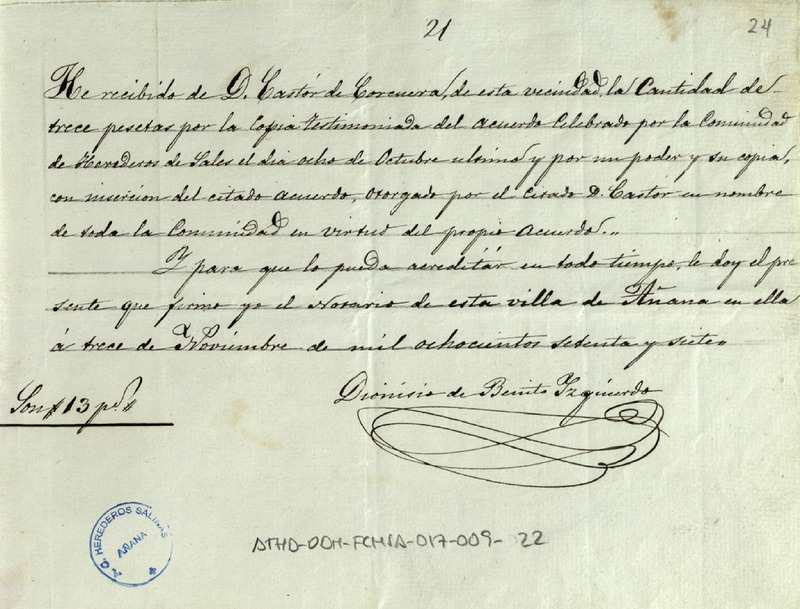 21
24
He recibido de D. Castór de Corcuera, de esta vecindad, la Cantidad de
trece pesetas por la Copia testimoniada del Acuerdo Celebrado por la Comunidad
de Herederos de Sales el dia ocho de Octubre ultimo y por un poder y su copia,
con insercion del citado acuerdo, otorgado por el citado D. Castór en nombre
de toda la Comunidad en virtud del propio Acuerdo.
Y para que lo pueda acreditár en todo tiempo, le doy el pre
sente que firmo yo el Notario de esta villa de Añana en ella
á trece de Noviembre de mil ochocientos setenta y siete.
Dionisio de Benito Yzquierdo
Son # 13 ps. #
HEREDEROS SALINAS
AÑANA
ATHO-DOM-FCMSA-017-009-22